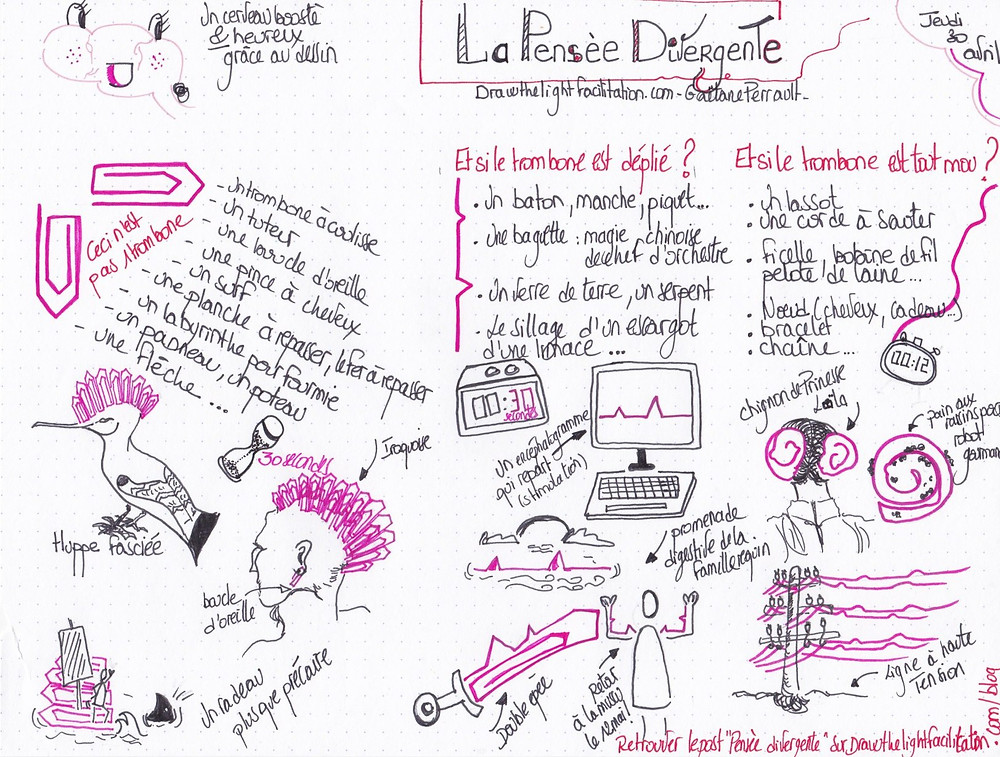 Un cerveau boosté
& heureux
grâce au dessin
La Pensée Divergente
Drawthelightfacilitation.com - Gaëtane Perrault -
Jeudi
30
avril
Ceci n'est
pas 1 trombone
- Un trombone à coulisse
- un tuteur
- une boucle d'oreille
- une pince à cheveux
- un surf
- une planche à repasser, le fer à repasser
- un labyrinthe pour fourmie
- un panneau, un poteau
- une flèche ...
Et si le trombone est déplié ?
• Un baton, manche, piquet...
• Une baguette : magie, chinoise
de chef d'orchestre
• Un verre de terre, un serpent
• Le sillage d'un escargot
d'une limace ...
Et si le trombone est tout mou ?
• Un lassot
• Une corde à sauter
• Ficelle, bobine de fil
pelote de laine ...
• Noeud (cheveux, cadeau...)
• bracelet
• chaîne ...
00:12
Huppe fasciée
30 secondes
Iroquoise
boucle
d'oreille
Un radeau
plus que précaire
00:30
secondes
Un encéphalogramme
qui repart
(stimulation)
promenade
digestive de la
famille requin
Double épée
Retour
à la muscu
le renard !
chignon de Prinesse
Leïla
pain aux
raisins pour
robot
gourmand
Ligne à haute
Tention
Retrouver le post "Pensée divergente" sur Drawthelightfacilitation.com/blog